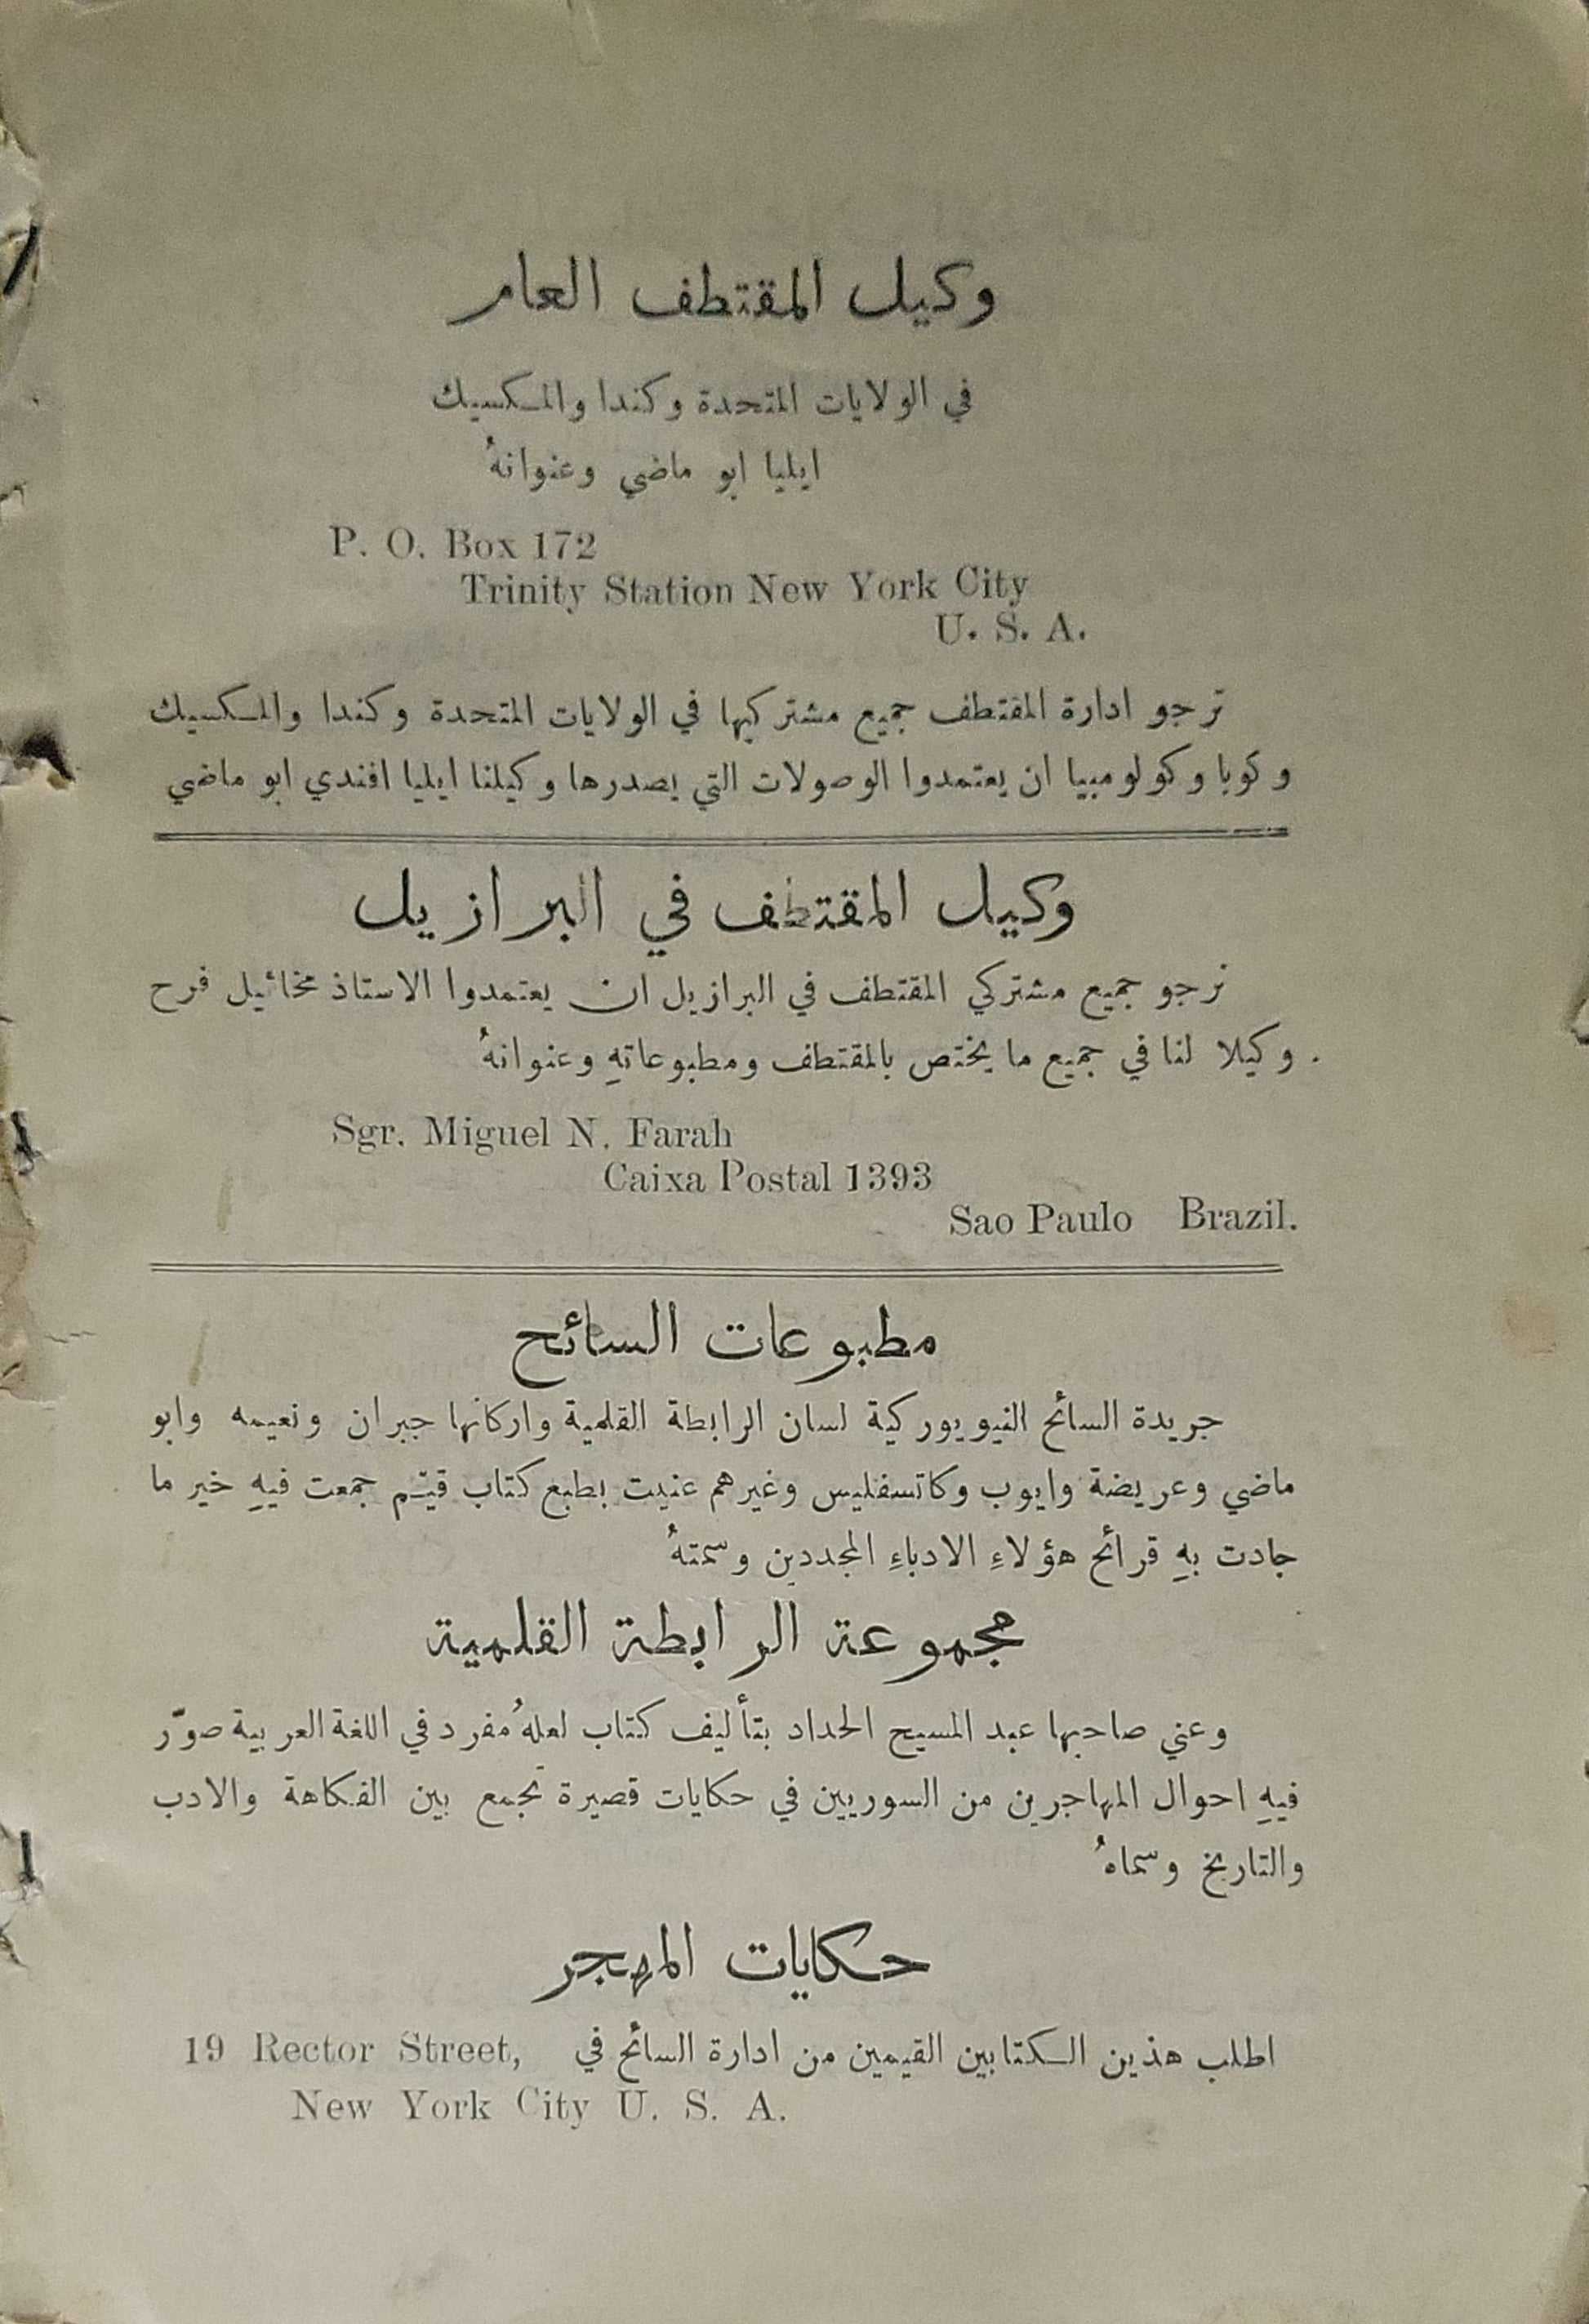 وكيل المقتطف العام
في الولايات المتحدة وكندا والمكسيك
ايليا ابو ماضي وعنوانهُ
P. O. Box 172
Trinity Station New York City
U. S. A.
نرجو ادارة المقتطف جميع مشتركيها في الولايات المتحدة وكندا والمكسيك
وكوبا وكولومبيا ان يعتمدوا الوصولات التي يصدرها وكيلنا ايليا افندي ابو ماضي
وكيل المقتطف في البرازيل
نرجو جميع مشتركي المقتطف في البرازيل ان يعتمدوا الاستاذ مخائيل فرح
. وكيلا لنا في جميع ما يختص بالمقتطف ومطبوعاتهِ وعنوانهُ
Sgr. Miguel N. Farah
Caixa Postal 1393
Sao Paulo Brazil.
مطبوعات السائح
جريدة السائح النيويوركية لسان الرابطة القلمية واركانها جبران ونعيمه وابو
ماضي وعريضة وايوب وكاتسفليس وغيرهم عنيت بطبع كتاب قيّم جمعت فيهِ خير ما
جادت بهِ قرائح هؤلاءِ الادباءِ المجددين وسمتهُ
مجموعة الرابطة القلمية
وعني صاحبها عبد المسيح الحداد بتأليف كتاب لعلهُ مفرد في اللغة العربية صوّر
فيهِ احوال المهاجرين من السوريين في حكايات قصيرة تجمع بين الفكاهة والادب
والتاريخ وسماهُ
حكايات المهجر
اطلب هذين الكتابين القيمين من ادارة السائح في 19 Rector Street,
New York City U. S. A.